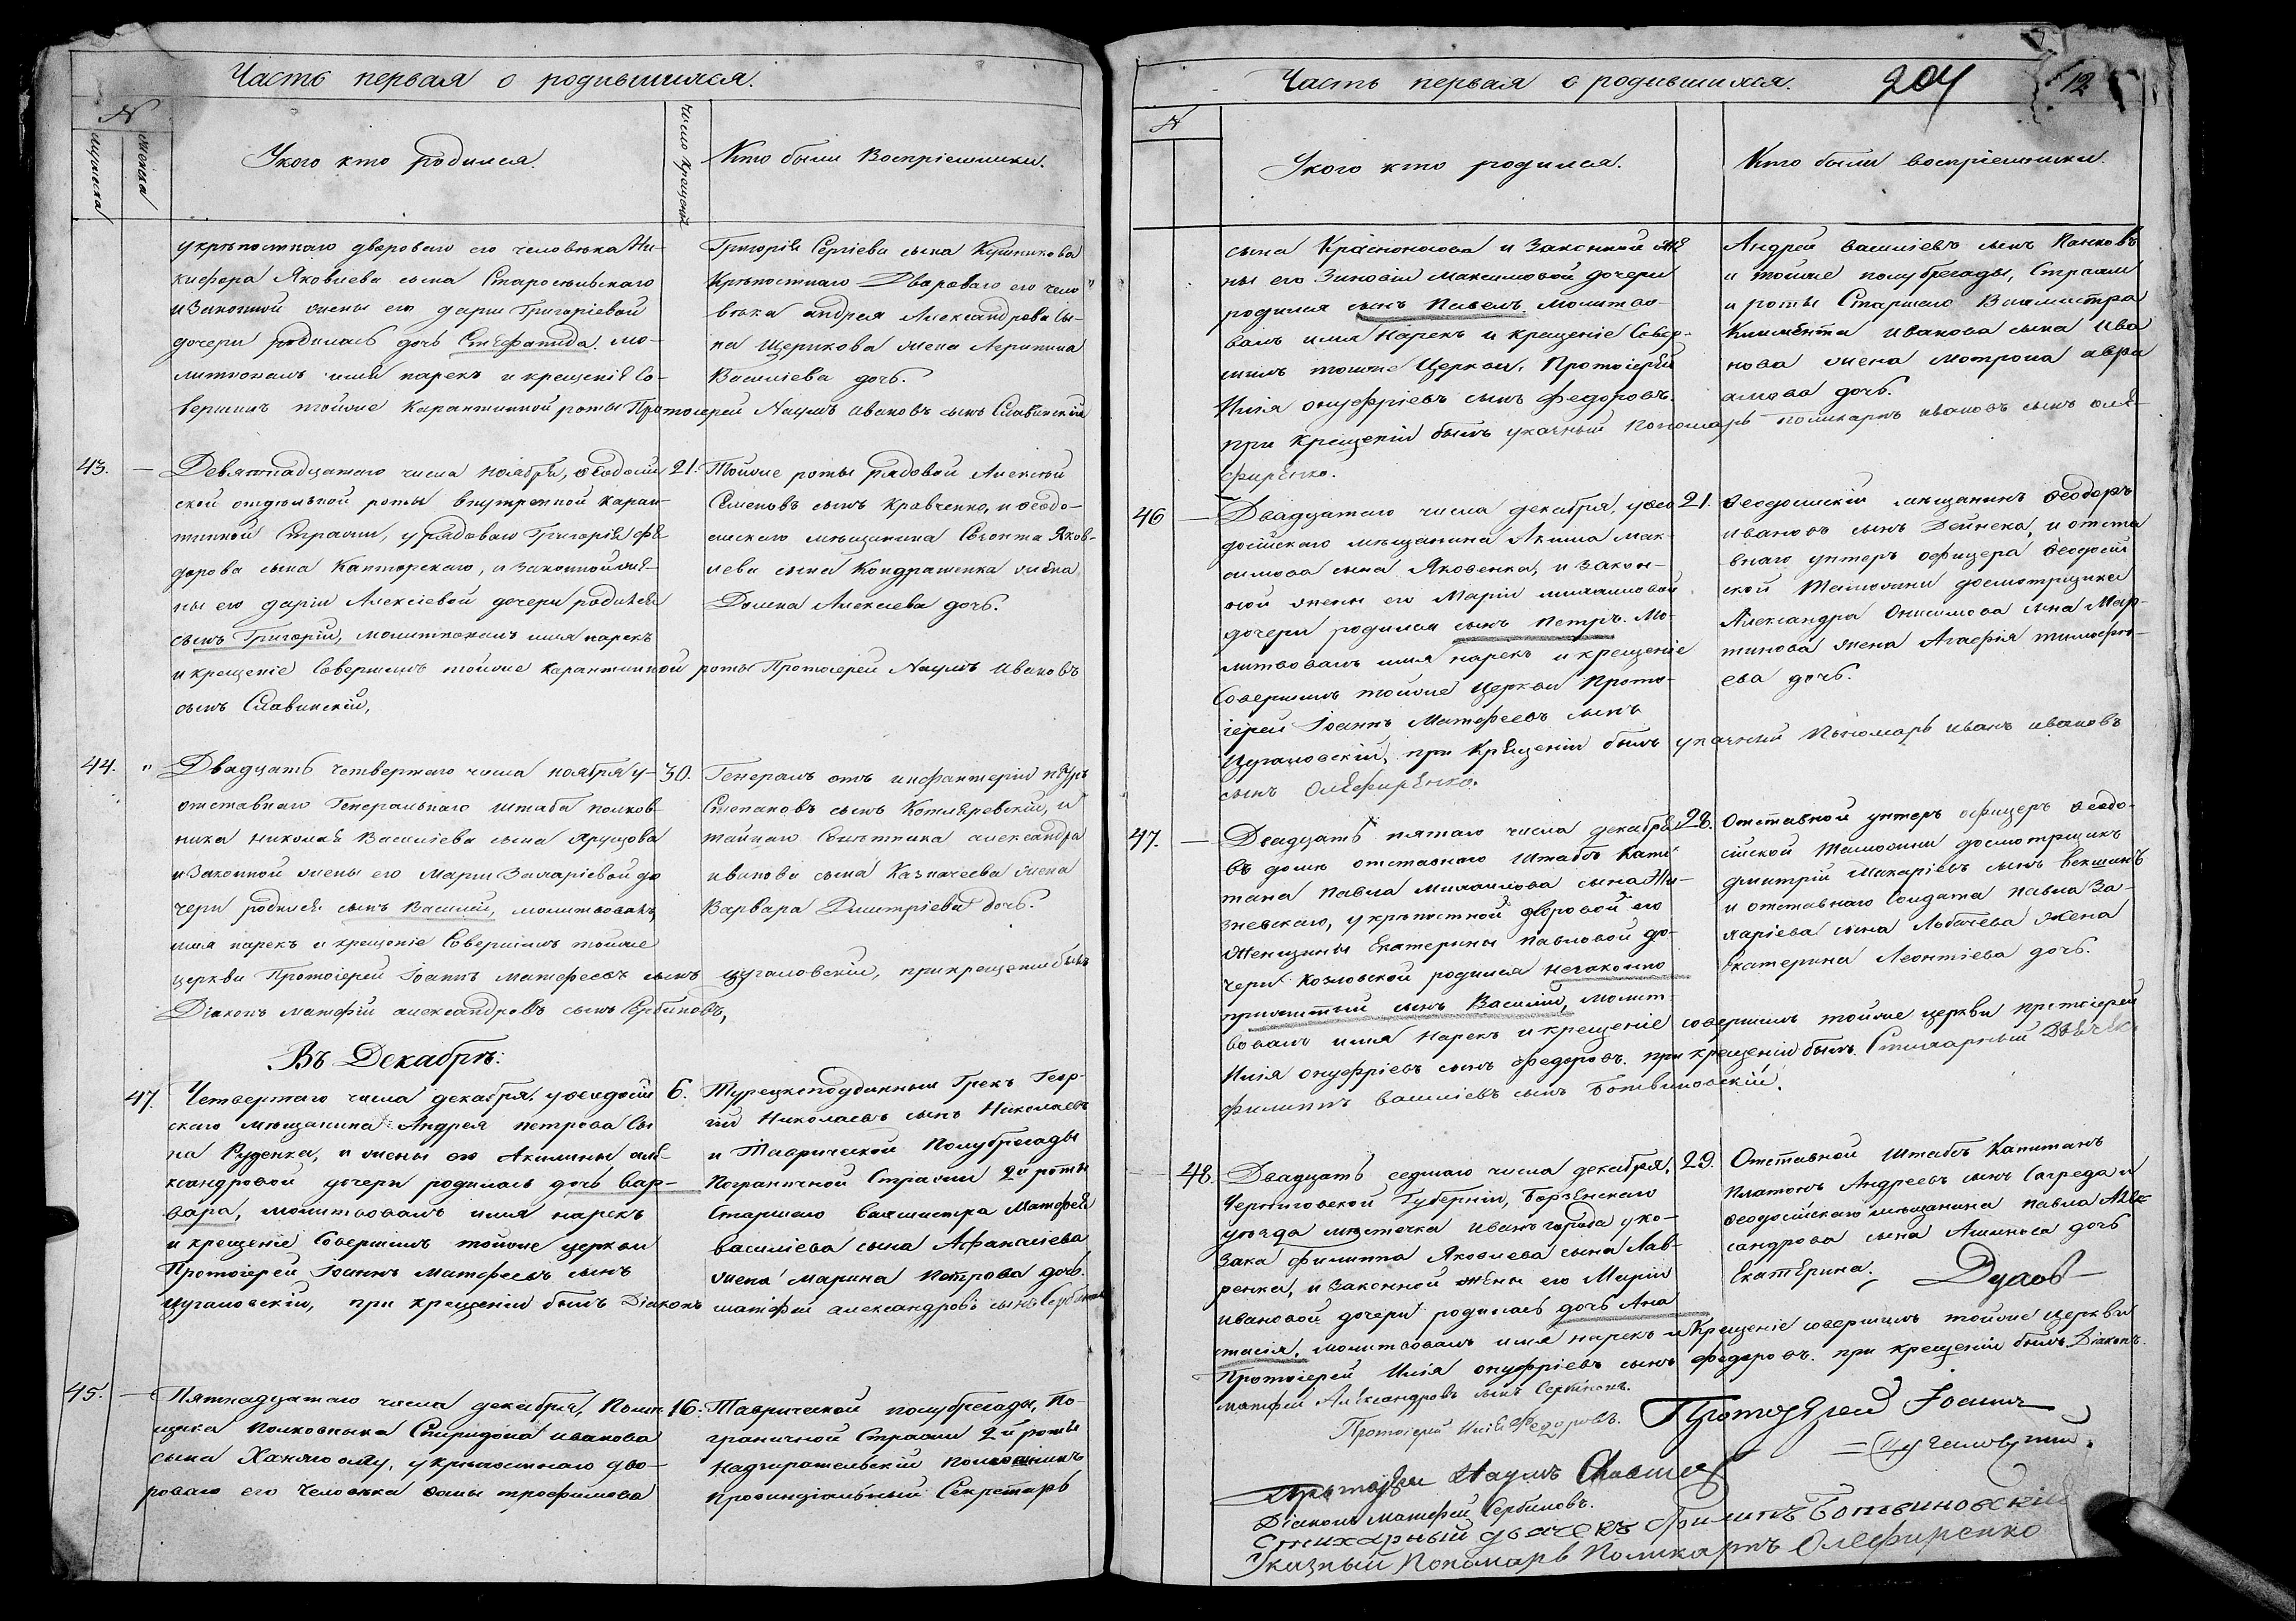 Часть первая о родившихся.
N
мужеска
женска
Укого кто родился.
число крещенія
Кто были Воспріемники.
укрѣпостнаго двороваго его человѣка Ни-
кифора Яковлева сына Старосельскаго
и Законной жены его дарьи Григоріевой
дочери родилась дочь Стефанида. мо-
литвовалъ имя нарекъ и крещеніе Со-
вершилъ тойже Карантинной роты Протоіерей Наумъ Ивановъ сынъ Славинскій
Григорія Сергіева сына Кушникова
Крѣпостнаго Двороваго его чело-
вѣка андрея Александрова Сы-
на Щерикова жена Агрипина
Васильева дочь.
43.
Девятнадцатаго числа ноября, Ѳеодосій
ской отдѣльной роты внутренной каран-
тинной Стражи, у рядоваго Григорія фе
дорова сына Канторскаго, и Законной же-
ны его даріи Алексіевой дочери родился
сынъ Григорій, молитвовалъ имя нарекъ
и крещеніе Совершилъ тойже карантинной роты Протоіерей Наумъ Ивановъ
сынъ Славинскій,
21.
Тойже роты рядовой Алексѣй
Семеновъ сынъ Кравченко, и Ѳеодо-
сійскаго мѣщанина Яков-
лева сына Кондрашенка жена
Домна Алексіева дочь.
44.
Двадцать четвертаго числа ноября у-
отставнаго Генеральнаго штаба полков-
ника николая Васильева сына
и Законной жены его Маріи Захаріевой до
чери родился сынъ Василій, молитвовалъ,
имя нарекъ и крещеніе Совершилъ тойже
церкви Протоіерей Іоаннъ матфеевъ сынъ цугаловскій, при крещеніи былъ
Діаконъ матфій александровъ сынъ Сербиновъ,
30.
Генералъ отъ инфантеріи петръ
Степановъ сынъ Котляревскій, и
тайнаго Совѣтника александра
иванова сына Казначеева жена
Варвара Дмитріева дочь.
Въ Декабрѣ:
47.
Четвертаго числа декабря, уѳеодосій
скаго мѣщанина Андрея петрова Сы
на Руденка, и жены его Акилины але-
ксандровой дочери родилась дочь Вар-
вара, молитвовалъ имя нарекъ
и крещеніе Совершилъ тойже церкви
Протоіерей Іоаннъ матфеевъ сынъ
цугаловскій, при крещеніи былъ Діаконъ матфій александровъ сынъ Сербиновъ
6.
Турецкоподданный Грекъ Геор-
гій Николаевъ сынъ Николаевъ
и Таврической Полубрегады
Пограничной Стражи 2й роты
Старшаго вахмистра Матфея
василіева сына Афанасіева
жена марина петрова дочь.
45.
Пятнадцатаго числа декабря, Поме-
щика Полковника Спиридона иванова
сына, укрѣпостнаго дво-
роваго его Человѣка фомы трофимова
16.
Таврической полубрегады, По-
граничной Стражи 2й роты
Надзирательскій Помощникъ
Провинціальный Секретарь
Часть первая о родившихся.
204
12
N
Укого кто родился.
Кто были воспріемники.
сына Красноносова и Законной же
ны его Зиновіи максимовой дочери
родился сынъ Павелъ. Молитво-
валъ имя Нарекъ и крещеніе Совер-
шилъ тойже Церкви, Протоіерей
Илія онуфріевъ сынъ федоровъ.
при крещеніи былъ указный Пономарь поликарпъ ивановъ сынъ оле-
фиренко.
Андрей василіевъ сынъ Панковъ
и тойже полубрегады, Стражи
и роты Старшаго Вахмистра
Климента иванова сына Ива
нова жена мотрона авра
амова дочь.
46
Двадцатаго числа декабря, уѳео
досійскаго мѣщанина Акима Мак-
симова сына Яковенка, и Закон-
ной жены его Маріи михаиловой
дочери родился сынъ петръ. Мо-
литвовалъ имя нарекъ и крещеніе
Совершилъ тойже Церкви прото-
іерей Іоаннъ Матфеевъ сынъ
Цугаловскій, при Крещеніи былъ указный Пономарь иванъ ивановъ
сынъ Олефиренко.
21.
Ѳеодосійскій мѣщанинъ Ѳеодоръ
ивановъ сынъ Дейнека, и отста
внаго унтеръ офицера Ѳеодосій
ской Таможни досмотрщика
Александра Онисимова сына Мар-
тинова жена Агафія тимофѣ-
ева дочь.
47.
Двадцать пятаго числа декабря,
въ домѣ отставнаго штабсъ Капи
тана Павла михаилова сына Ни-
зневскаго, укрѣпостной дворовой его
Женщины Екатерины павловой до-
чери Козловской родился незаконно
прижитый сынъ Василій, молит-
вовалъ имя Нарекъ и крещеніе совершилъ тойже церкви протоіерей
Илія онуфріевъ сынъ федоровъ. при крещеніи былъ Стихарный Дьячекъ
филиппъ василіевъ сынъ Ботвиновскій.
28.
Отставной унтеръ офицеръ Ѳеодо-
сійской Таможни досмотрщикъ
дмитрій Макаріевъ сынъ векшинъ
и отставнаго Солдата павла За-
харіева сына Лобачева жена
Екатерина Леонтіева дочь.
48.
Двадцать седмаго числа декабря,
Черниговской Губерніи, Борзенскаго
уѣзда мѣсточка ивангорода уко-
зака филиппа Яковлева сына Лав-
ренка, и Законной жены его Маріи
ивановой дочери родилась дочь Ана
стасія. молитвовалъ имя нарекъ и Крещеніе совершилъ тойже церкви
Протоіерей Илія онуфріевъ сынъ федоровъ. при крещеніи былъ Діаконъ
матфій Александровъ сынъ Сербиновъ.
29.
Отставной штабсъ Капитанъ
Платонъ Андреевъ сынъ Сагредаи
Ѳеодосійскаго мѣщанина павла Але
ксандрова сына дочь
Екатерина.
Протоіерей Илія Федоровъ.
Протоіерей Іоаннъ
Цугаловскій.
Протоіерей Наумъ
Діаконъ Матфей Сербиновъ.
Стихарный дьячекъ Филиппъ Ботвиновскій
Указный Пономарь Поликарпъ Олефиренко